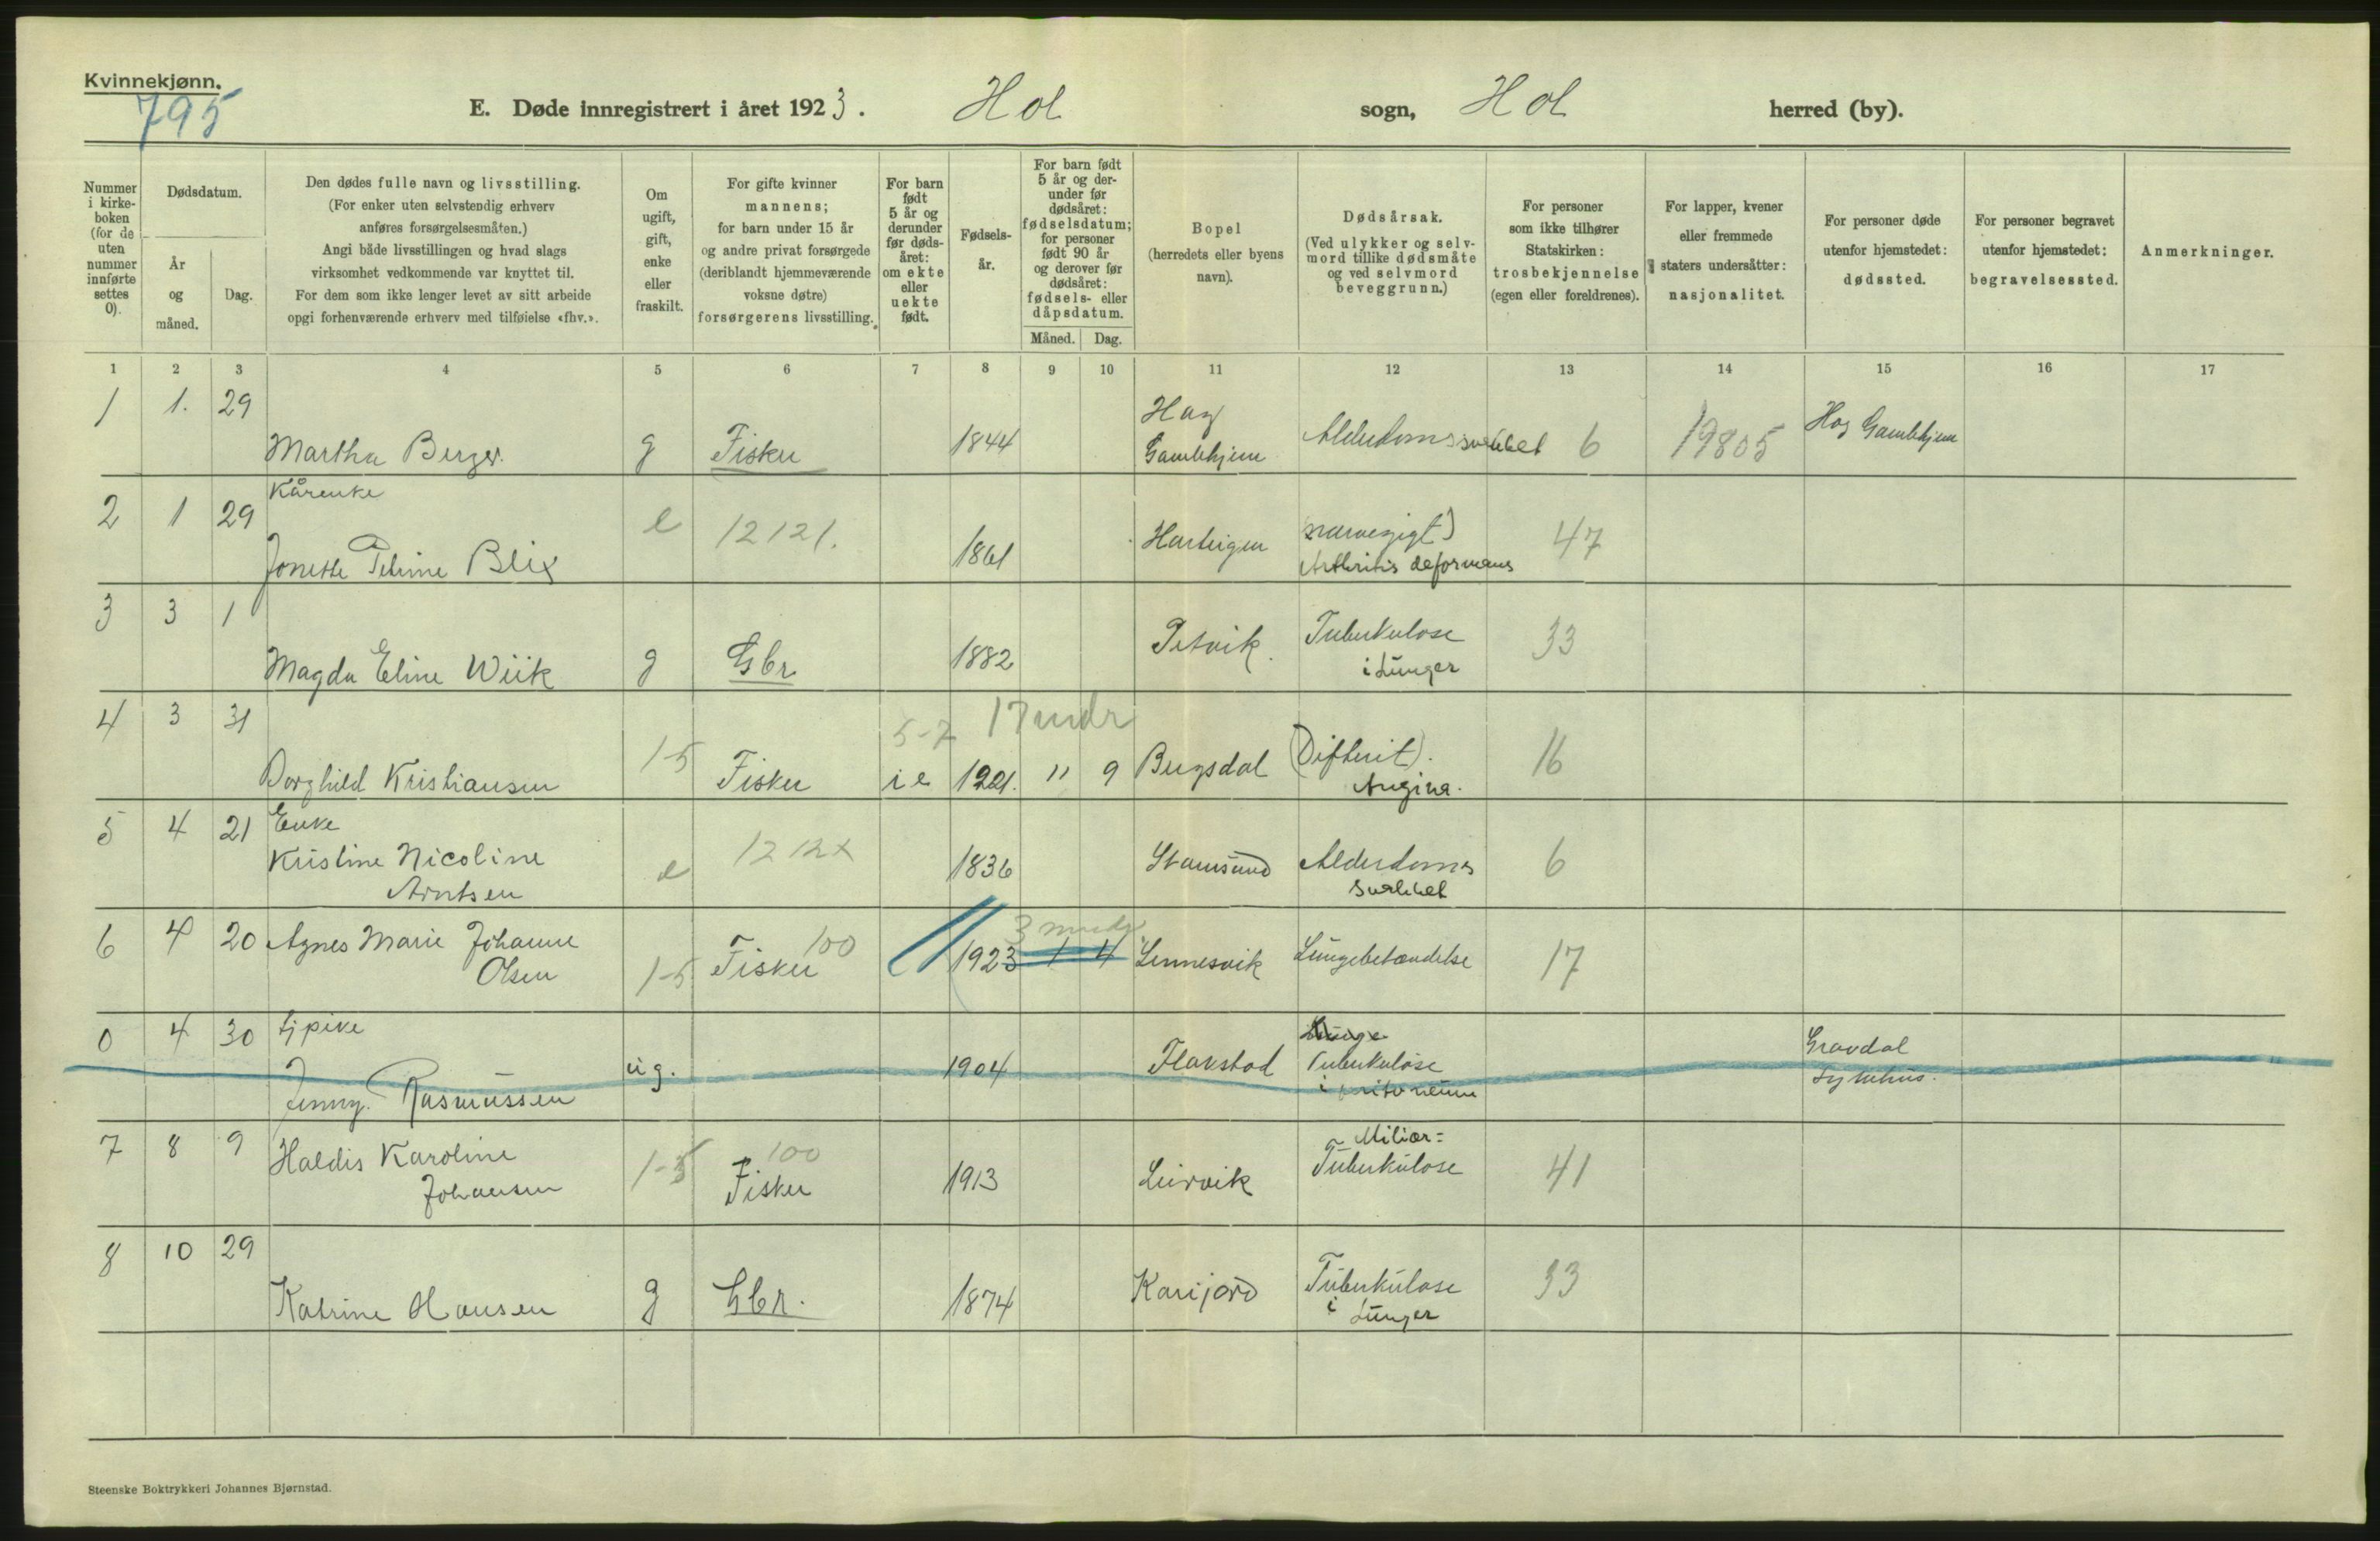 Kvinnekjønn.
795
E. Døde innregistrert i året 1923. Hol sogn, Hol herred (by).
Nummer i kirke-boken (for de uten nummer innførte settes 0).
Dødsdatum.
År og måned.
Dag.
Den dødes fulle navn og livsstilling.
(For enker uten selvstendig erhverv
anføres forsørgelsesmåten.)
Angi både livsstillingen og hvad slags
virksomhet vedkommende var knyttet til.
For dem som ikke lenger levet av sitt arbeide
opgi forhenværende erhverv med tilføielse «fhv.».
Om ugift, gift, enke eller fraskilt.
For gifte kvinner
mannens;
for barn under 15 år
og andre privat forsørgede
(deriblandt hjemmeværende
voksne døtre)
forsørgerens livsstilling.
For barn født 5 år og derunder før døds-året: om ekte eller uekte født.
Fødsels-år.
For barn født 5 år og der-under før dødsåret: fødselsdatum; for personer født 90 år og derover før dødsåret: fødsels- eller dåpsdatum.
Måned. Dag.
Bopel
(herredets eller byens
navn).
Dødsårsak.
(Ved ulykker og selv-
mord tillike dødsmåte
og ved selvmord
beveggrunn.)
For personer
som ikke tilhører
Statskirken:
trosbekjennelse
(egen eller foreldrenes).
For lapper, kvener
eller fremmede
staters undersåtter:
nasjonalitet.
For personer døde
utenfor hjemstedet:
dødssted.
For personer begravet
utenfor hjemstedet:
begravelsessted.
Anmerkninger.
1 2 3 4 5 6 7 8 9 10 11 12 13 14 15 16 17
1 1. 29 Martha Berger g Fisker 1844 Hag Gamlehjem Alderdomssvækkel 6 19805 Hag Gamlehjem
2 1 29 Kårenke
Jonette Petrine Blix e 12121. 1861 Harteigen Arthritis deformans 47
3 3 1 Magda Eline Wiik g Gbr. 1882 Petvik Tuberkulose i Lunger 33
4 3 31 Borghild Kristiansen 1-5 Fisker 5-7 17 mdr i e 1921. 11 9 Bugsdal (Difterit). Angina. 16
5 4 21 Enke
Kristine Nicoline
Arntsen e 1212x 1836 Stamsund Alderdoms svækkel 6
6 4 20 Agnes Marie Johanne
Olsen 1-5 Fisker 100 1923 3 mndr 1 4 Lennesvik Lungebetændelse 17
0 4 30 Jenny Rasmussen ug. 1904 Flakstad Tuberkulose i Gravdal Sykehus.
7 8 9 Haldis Karoline
Johansen 1-5 100 Fisker 1913 Leirvik Miliær= Tuberkulose 41
8 10 29 Katrine Hansen g Gbr. 1874 Karijord Tuberkulose i Lunger 33
Steenske Boktrykkeri Johannes Bjørnstad.